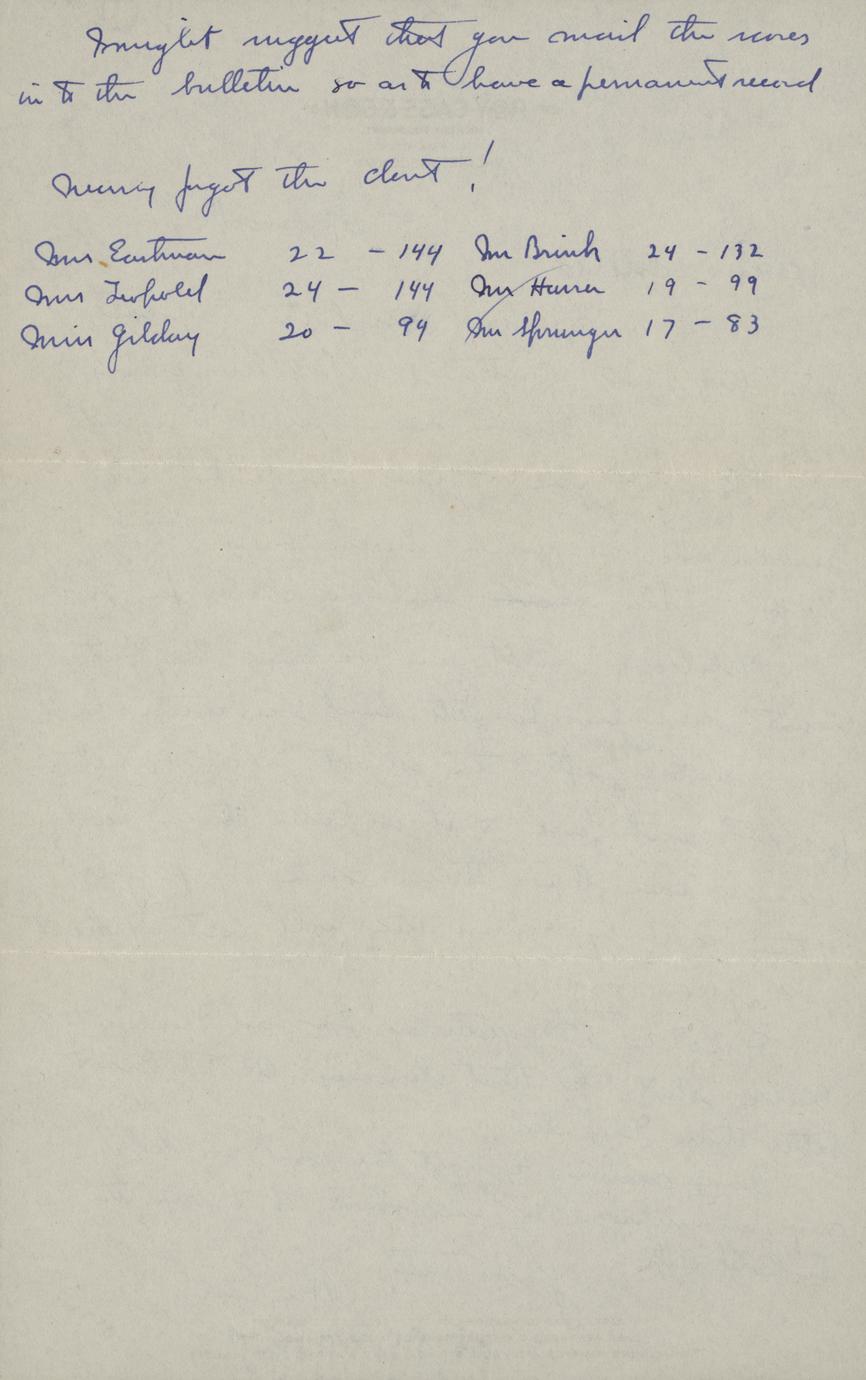 I might suggest that you mail the scores
in to the bulletin so as to have a permanent record
Nearly forgot the clout!
Mrs. Eastman 22 - 144 Mr Brink 24 - 132
Mrs Leopold 24 - 144 Mr 19 - 99
Miss Gilday 20 - 94 Mr Sprunger 17 - 83